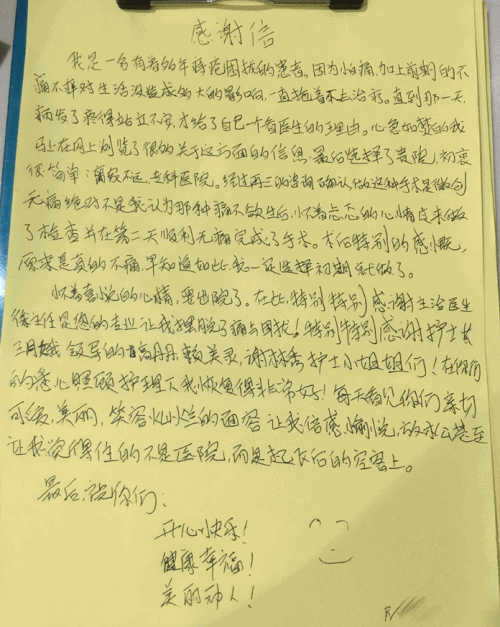 感谢信
我是一名有着多年痔疮困扰的患者。因为怕痛,加上前期的不
痛不痒对生活没造成多大的影响,一直拖着不去治疗。直到那一天
病发了疼得站立不安,才给了自己一个看医生的理由。心急如焚的我
马上在网上浏览了很多关于这方面的信息,最后选择了贵院,初衷
很简单:离家不远,专科医院。经过再三的咨询确认做这种手术是微创
无痛绝对不是我认为那种痛不欲生后,怀着忐忑的心情过来做
了检查并在第二天顺利无痛完成了手术。术后特别的感慨,
原来是真的不痛,早知道如此我一定选择初期就做了。
怀着喜悦的心情,要出院了。在此,特别特别感谢主治医生
主任是您的专业让我摆脱了痛与困扰。特别特别感谢护士长
领导的 护士小姐姐们!在你们
的悉心照顾护理下我恢复得非常好!每天看见你们亲切
可爱,美丽,笑容灿烂的面容让我倍感愉悦,放松甚至
让我觉得住的不是医院,而是起飞后的空客上。
最后祝你们:
开心快乐!
健康幸福!
美丽动人!